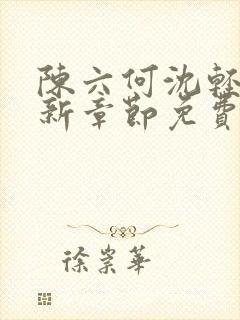 陳六何沈輕
新章節免費
徐崇華